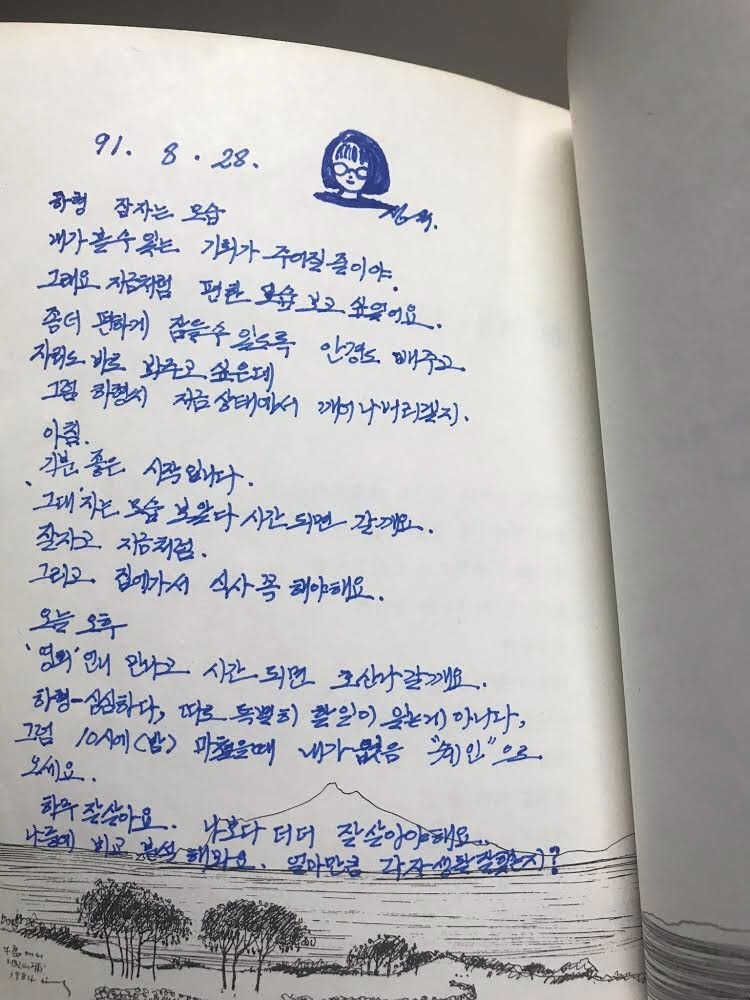 91. 8. 28.
하형 잠자는 모습
내가 볼수 있는 기회가 주어질 줄이야.
그래요 지금처럼 편한 모습 보고 싶었어요.
좀더 편하게 잠들수 있도록 안경도 빼주고
자리도 바로 봐주고 싶은데
그럼 하형시 지금 상태에서 깨어나버리겠지.
아침.
기분 좋은 시작입니다.
그대 자는 모습 보았다 시간되면 갈께요.
잘자고 지금처럼.
그리고 집에가서 식사 꼭 해야해요.
오늘 오후
'영희' 언니 만나고 시간되면 갈께요.
하형-심심하다, 따로 특별히 할일이 있는게 아니다,
그럼 10시에(밤) 마쳤을때 내가 없음 으로
오세요.
하루 잘살아요. 나보다 더더 잘살아야해요.
나중에 비교 분석 해봐요. 얼마만큼 각자생활잘했는지?
1984